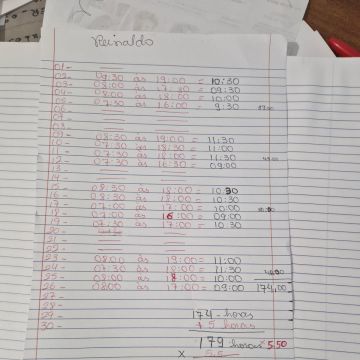 Reinaldo
01-
02- 09:30 às 19:00 = 10:30
03- 08:00 às 17:30 = 09:30
04- 08:00 às 18:00 = 10:00
05- 07:30 às 16:00 = 9:30
06-
07-
08-
09-
10- 08:30 às 19:00 = 11:30
11- 07:30 às 18:30 = 11:00
12- 07:30 às 18:00 = 11:30
13- 07:30 às 16:30 = 09:00
14-
15- 08:30 às 18:00 = 10:30
16- 08:30 às 18:00 = 10:30
17- 07:00 às 17:00 = 10:00
18- 07:00 às 16:00 = 09:00
19- 07:30 às 17:00 = 10:30
20-
21-
22-
23- 08:00 às 19:00 = 11:00
24- 07:30 às 18:00 = 11:30
25- 08:00 às 18:00 = 10:00
26- 08:00 às 17:00 = 09:00 174,00
27-
28-
29- 174- horas
30- + 5 horas
179 horas × 5,50
× 5.5